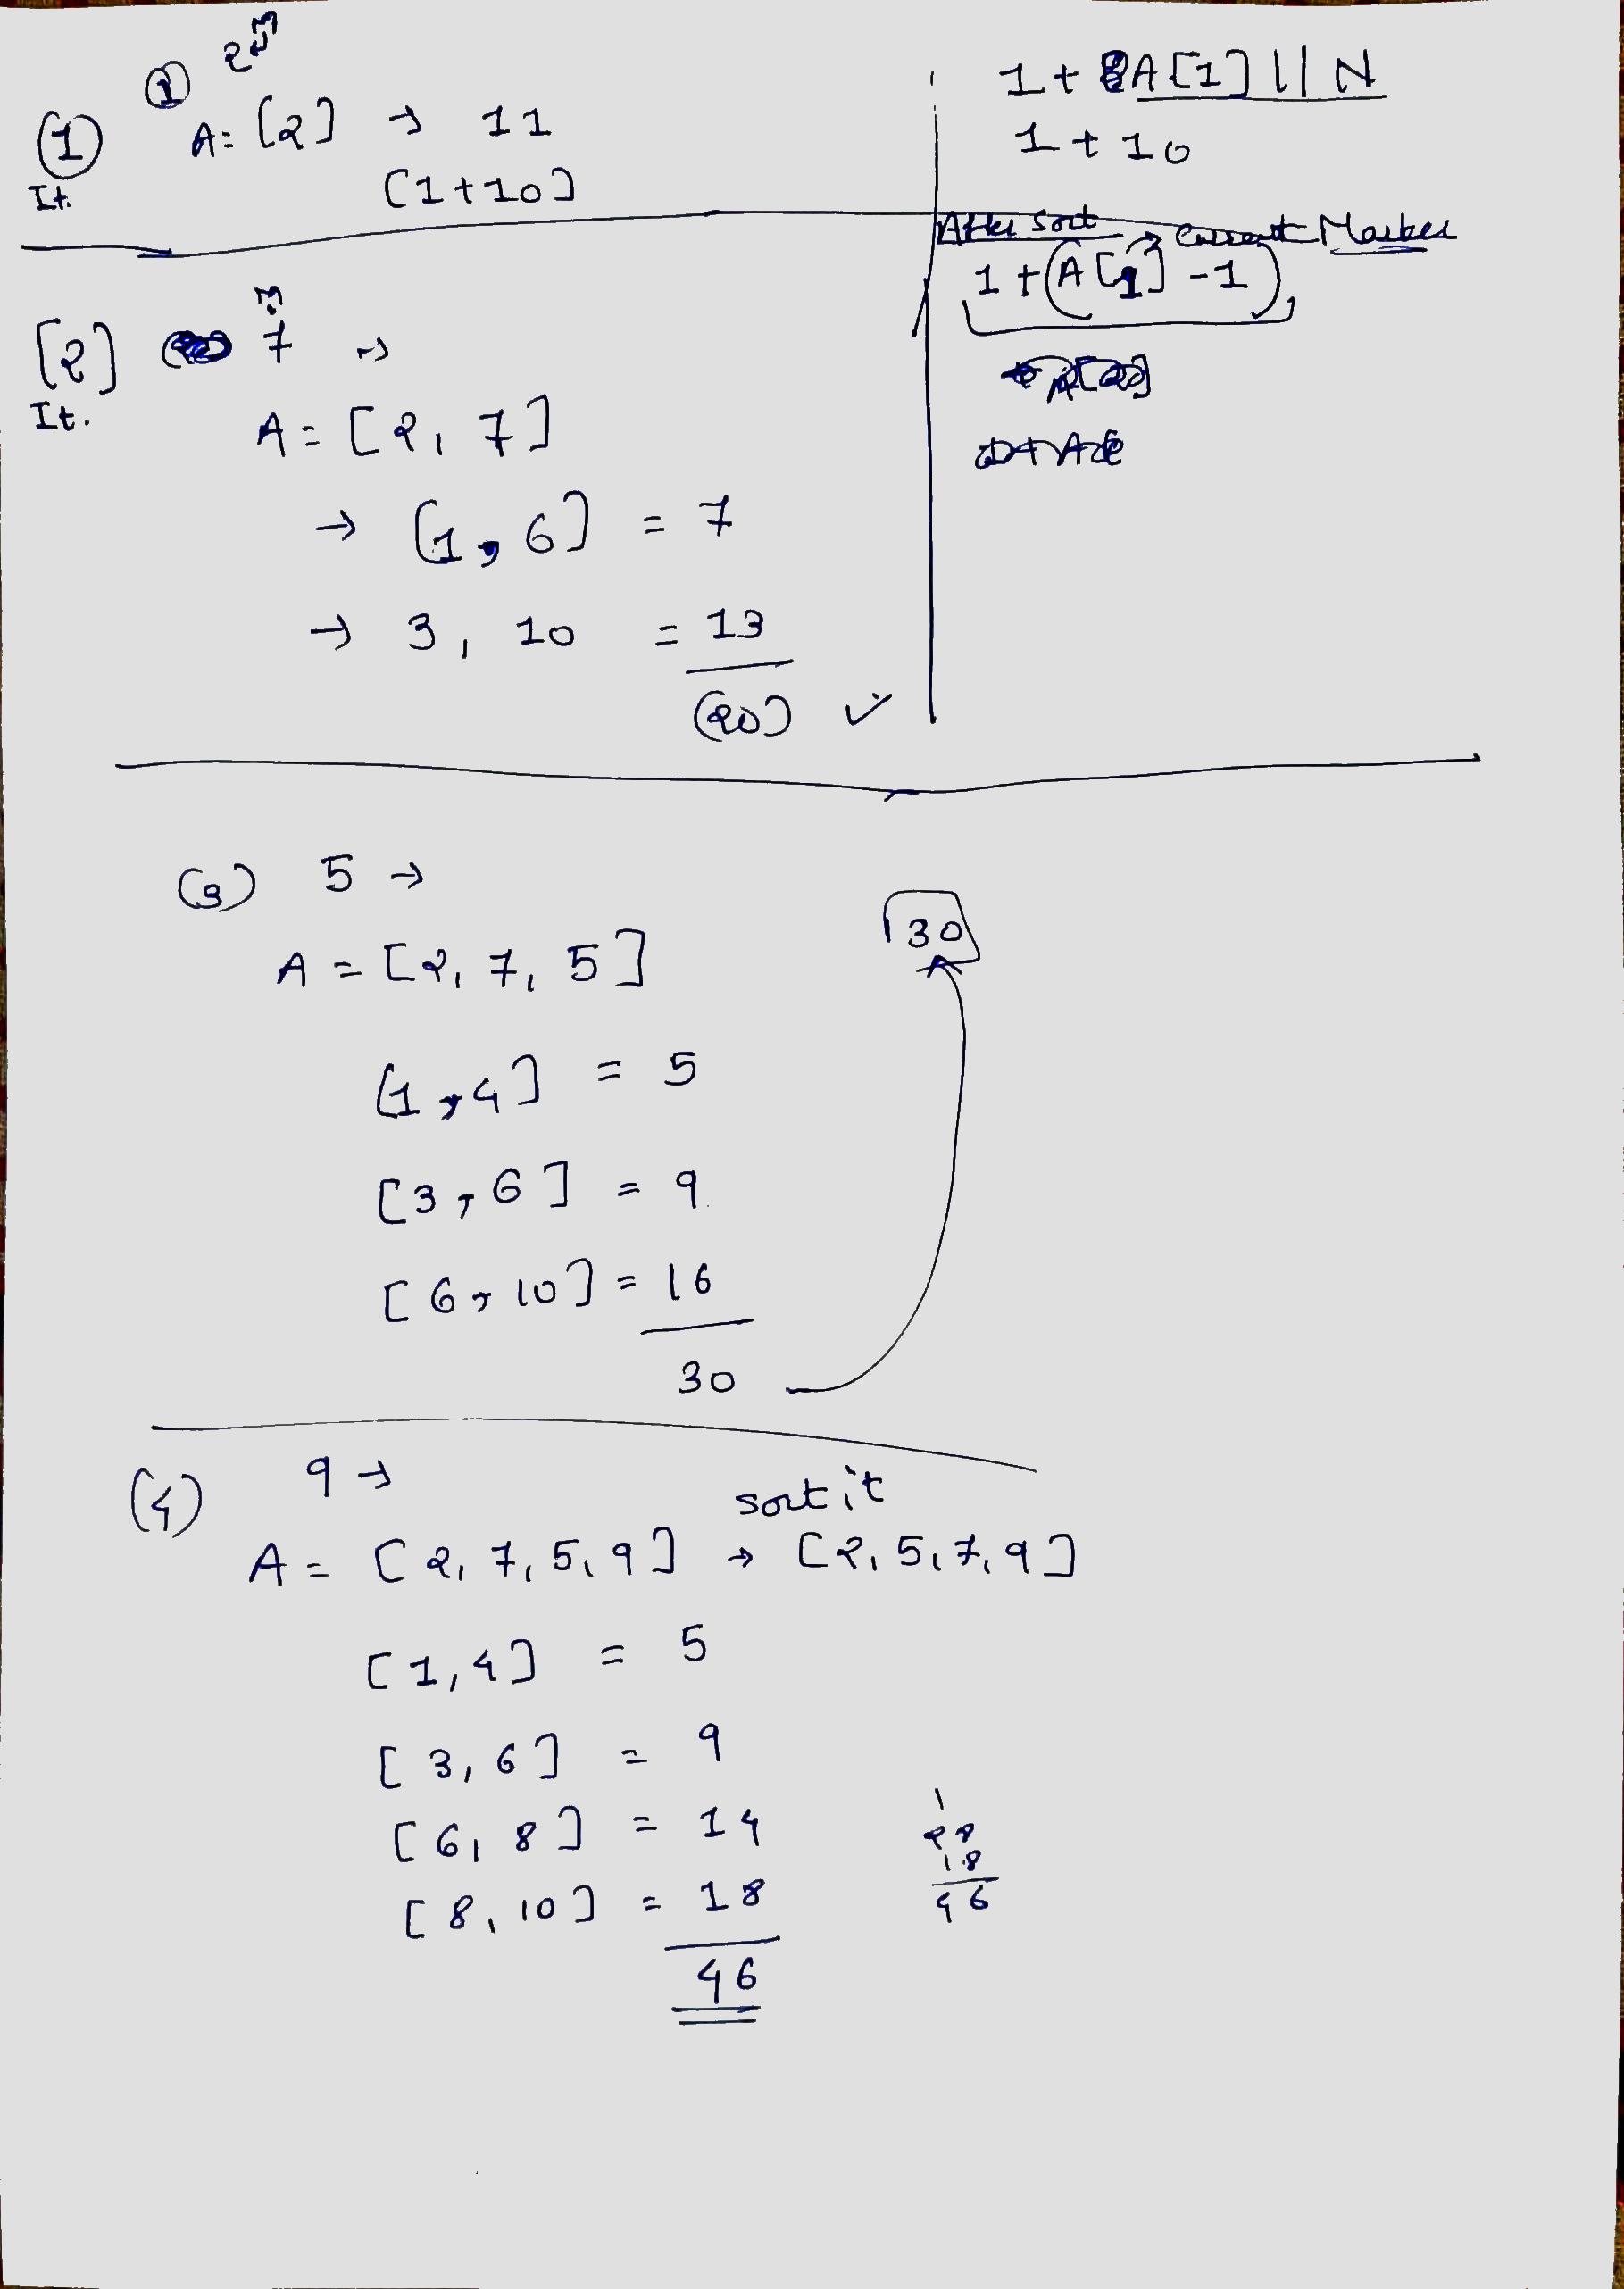 (1) It.
2 m
A = [2] → 11
(1+10)
1 + A[1] || N
1 + 10
After Sort → Current Marker
1 + (A[1] - 1)
[2] It.
m
7 →
A = [2, 7]
→ [1, 6] = 7
→ 3, 10 = 13
(20) ✓
(3) 5 →
A = [2, 7, 5]
[1, 4] = 5
[3, 6] = 9
[6, 10] = 16
30
30
(4) 9 →
sort it
A = [2, 7, 5, 9] → [2, 5, 7, 9]
[1, 4] = 5
[3, 6] = 9
[6, 8] = 14
[8, 10] = 18
46
1
28
18
46